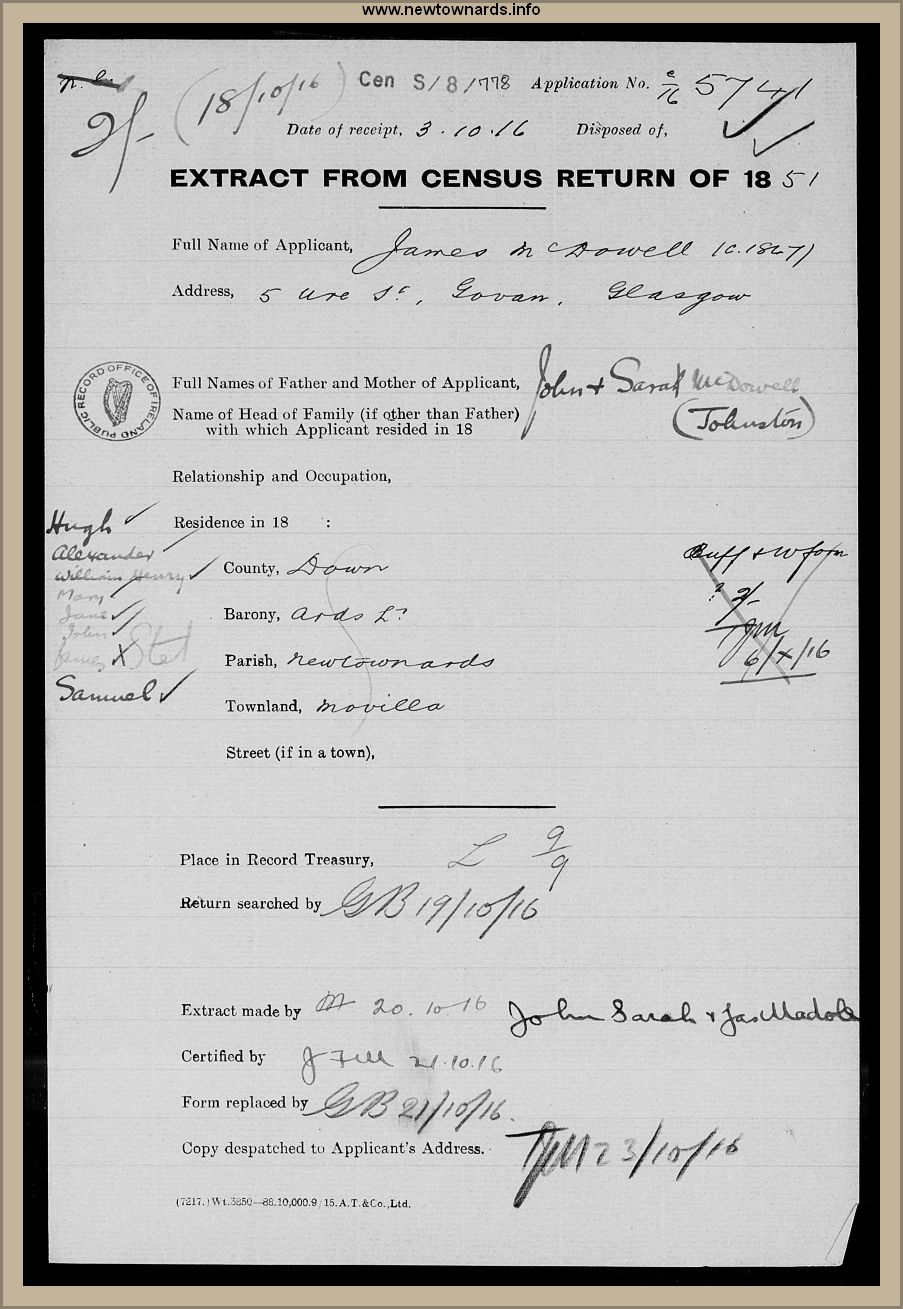 www.newtownards.info
(18/10/16) Cen S/8/778 Application No. c/16 5741
2/-
Date of receipt, 3.10.16 Disposed of,
EXTRACT FROM CENSUS RETURN OF 1851
Full Name of Applicant, James McDowell (c. 1847)
Address, 5 Ure St, Govan, Glasgow
PUBLIC RECORD OFFICE OF IRELAND
Full Names of Father and Mother of Applicant, John + Sarah McDowell
(Johnston)
Name of Head of Family (if other than Father)
with which Applicant resided in 18
Relationship and Occupation,
Residence in 18 :
Hugh ✓
Alexander
William Henry ✓
Mary
Jane ✓
John ✓
James X Stet
Samuel ✓
County, Down
Barony, Ards Lr
Parish, Newtownards
Townland, Movilla
Street (if in a town),
Buff + W form
? 2/-
6/X/16
Place in Record Treasury, L 9/9
Return searched by GB 19/10/16
Extract made by 20.10.16
John Sarah + Jas Madole
Certified by 21.10.16
Form replaced by GB 21/10/16.
Copy despatched to Applicant's Address. 23/10/16
(7217.) Wt.3850—88.10,000.9/15.A.T.&Co.,Ltd.